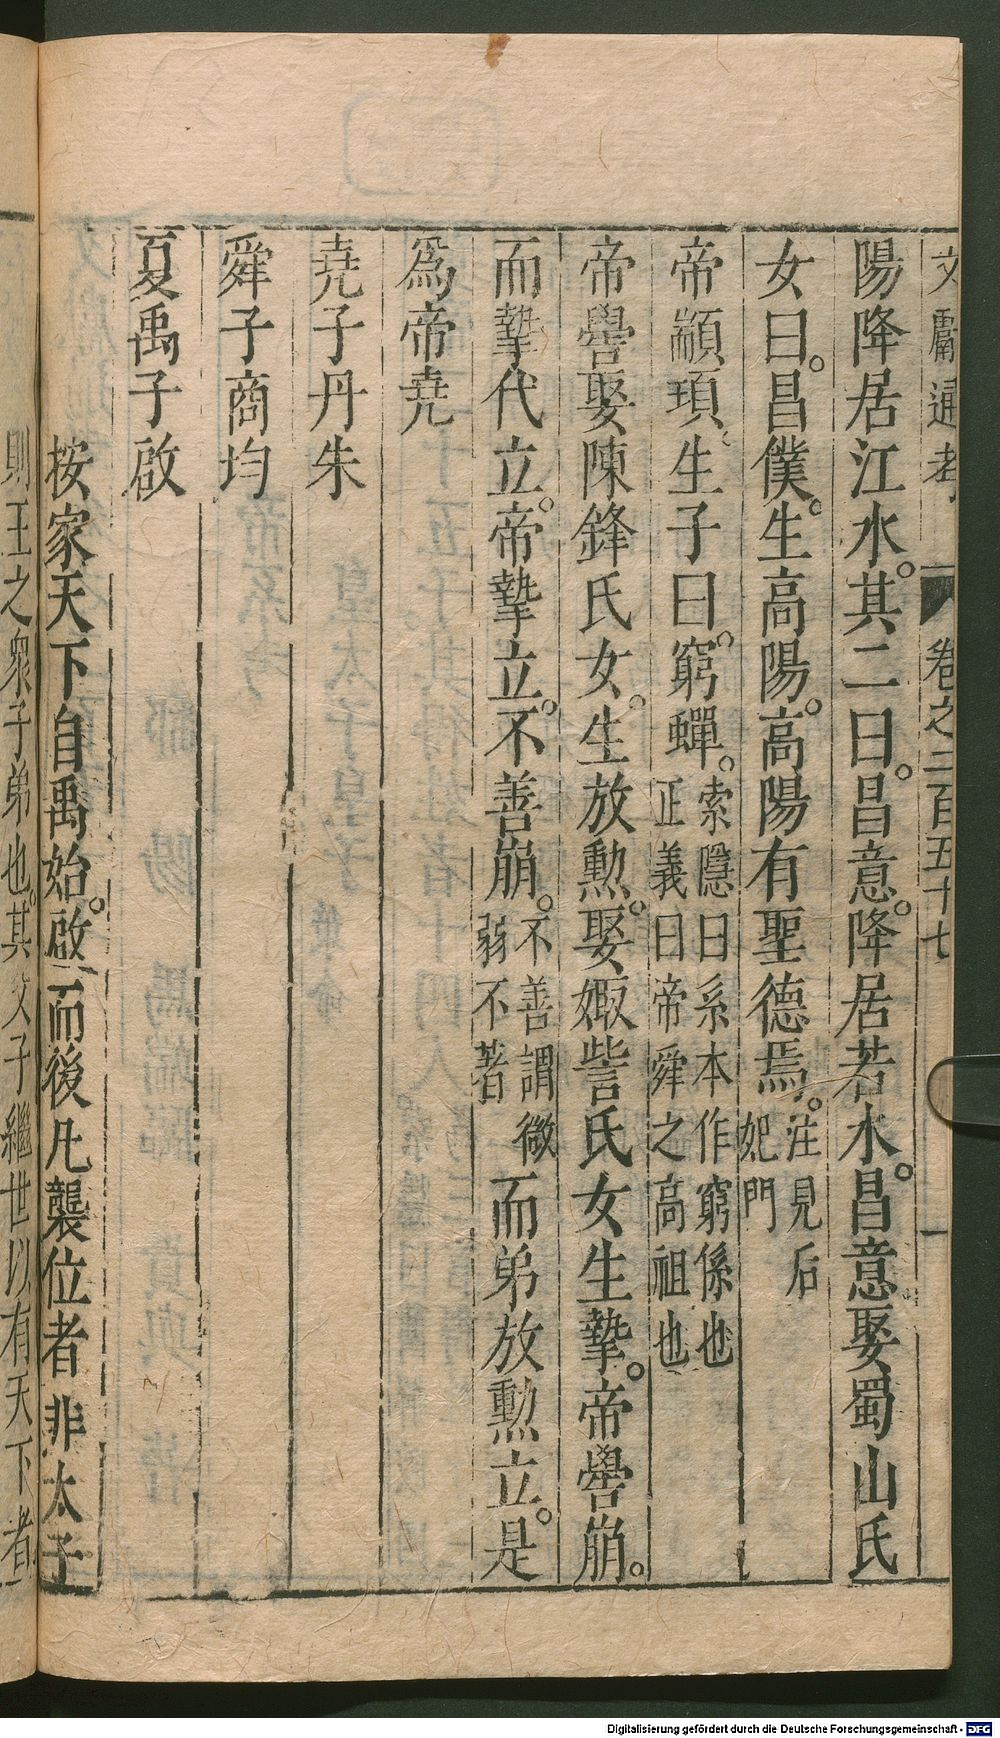 文獻通考 卷之二百五十七 一
陽降居江水。其二曰。昌意。降居若水。昌意娶蜀山氏
女曰。昌僕。生高陽。高陽有聖德焉。注見后妃門
帝顓頊生子曰。窮蟬。索隱曰系本作窮係也正義曰帝舜之高祖也
帝嚳娶陳鋒氏女。生放勲。娶娵訾氏女生摯。帝嚳崩。
而摯代立。帝摯立。不善崩。不善謂微弱不著而弟放勲立。是
爲帝尭
尭子丹朱
舜子商均
夏禹子啟
按家天下自禹始。啟而後凡襲位者非太子
則王之衆子弟也。其父子繼世以有天下者
Digitalisierung gefördert durch die Deutsche Forschungsgemeinschaft - DFG